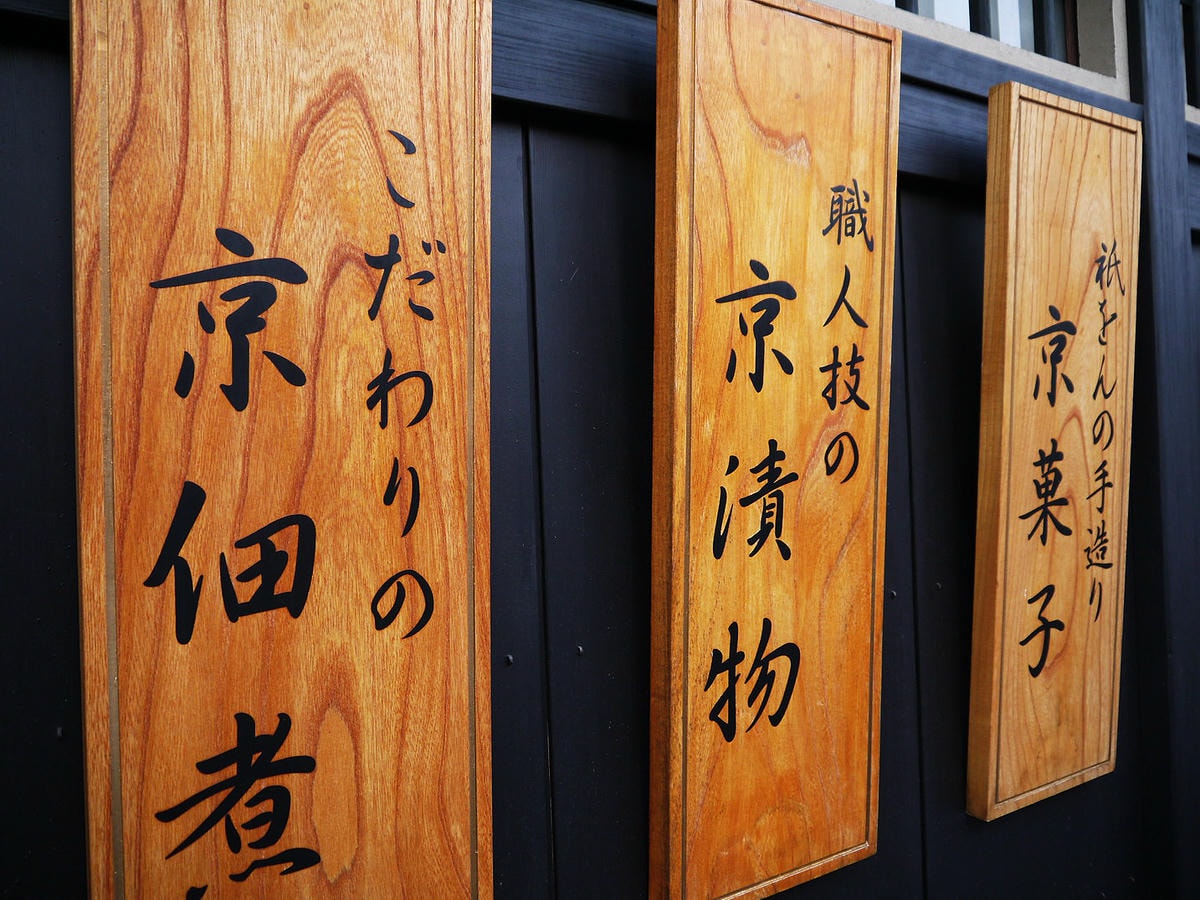 こだわりの
京佃煮
職人技の
京漬物
祇をんの手造り
京菓子